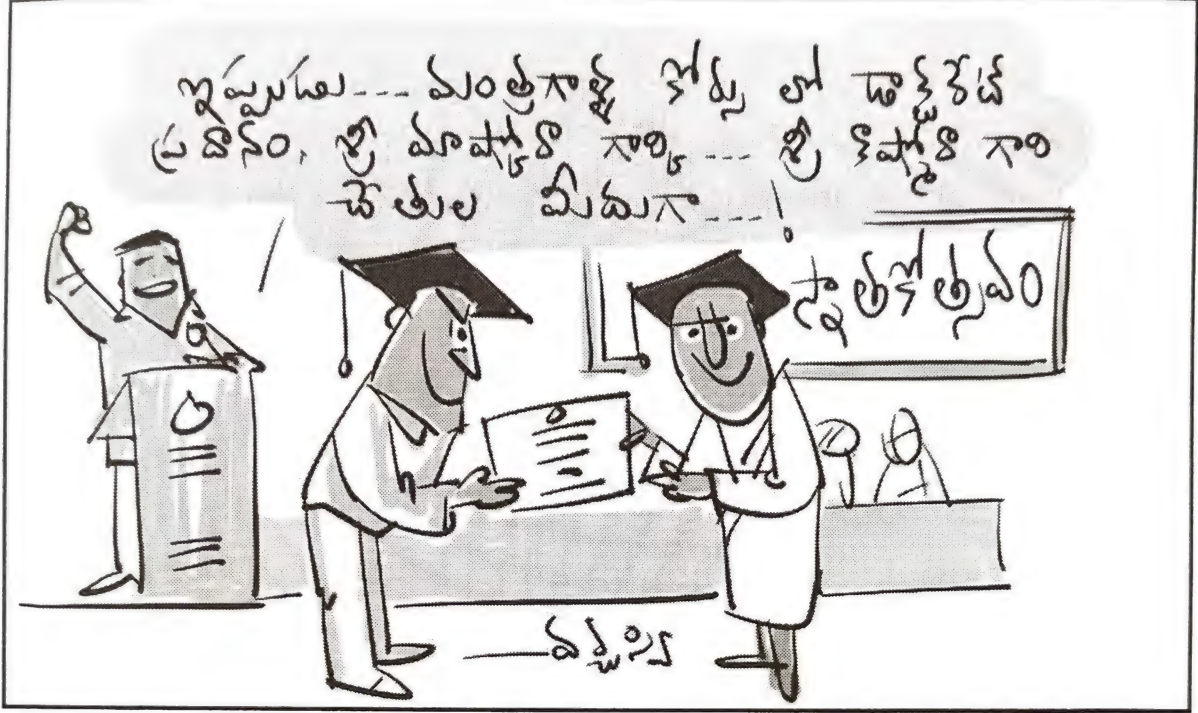 ఇప్పుడు--- మంత్రగాళ్ళ కోర్సు లో డాక్టరేట్
ప్రదానం, శ్రీ మాష్టోరా గార్కి--- శ్రీ కాష్మోరా గారి
చేతుల మీదుగా---!
స్నాతకోత్సవం